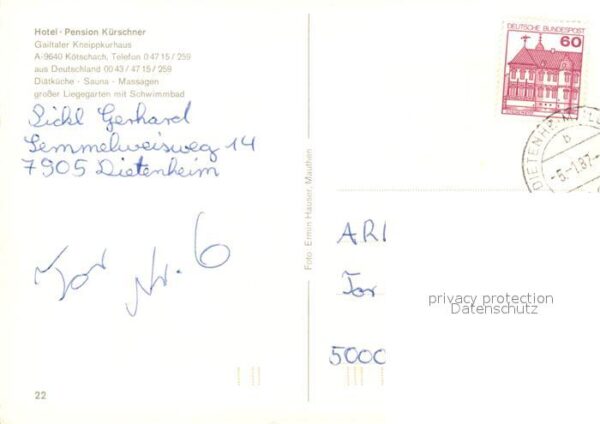 Hotel · Pension Kürschner
Gailtaler Kneippkurhaus
A-9640 Kötschach, Telefon 0 47 15 / 259
aus Deutschland 00 43 / 47 15 / 259
Diätküche · Sauna · Massagen
großer Liegegarten mit Schwimmbad
Sickl Gerhard
Semmelweisweg 14
7905 Dietenheim
Tor Nr. 6
22
Foto: Ermin Hauser, Mauthen
DEUTSCHE BUNDESPOST
60
DIETENHEIM
b
-5.-1.87-
ARI
Tor
5000
privacy protection
Datenschutz